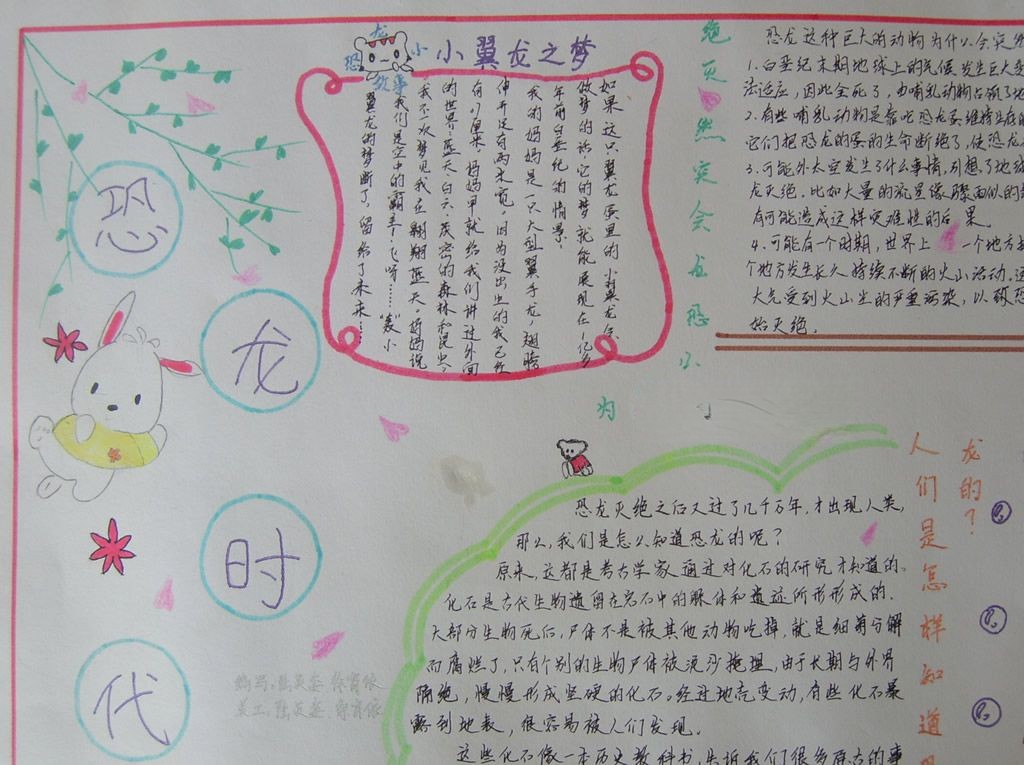 恐
龙
时
代
恐龙小故事
小翼龙之梦
如果这只翼龙蛋里的小翼龙会
做梦的话，它的梦就能展现在一亿多
年前白垩纪的情景。
我的妈妈是一只大型翼手龙，翅膀
伸开足有两米宽。因为没出生的我已经
有了
妈妈早就给我们讲过外面
的世界：蓝天、白云、茂密的森林和昆虫。
我不次梦见我在翱翔蓝天。妈妈说
我们是空中的霸主，飞呀……“轰”小
翼龙的梦断了，留给了未来……
小恐龙会突然灭绝
为
恐龙这种巨大的动物为什么会突然
1.白垩纪末期地球上的气候发生巨大变
法适应，因此全死了，由哺乳动物占领了地
2.有些哺乳动物是靠吃恐龙蛋维持生存的
它们把恐龙的蛋的生命断绝了，使恐龙
3.可能外太空发生了什么事情，引想了地球
龙灭绝。比如大量的流星像骤雨似的
有可能造成这样灾难性的后果。
4.可能有一个时期，世界上 一个地方
个地方发生长久持续不断的火山活动。这
大气受到火山尘的严重污染，以致恐
始灭绝。
人们是怎样知道
龙的？
恐龙灭绝之后又过了几千万年，才出现人类，
那么，我们是怎么知道恐龙的呢？
原来，这都是考古学家通过对化石的研究才知道的。
化石是古代生物遗留在岩石中的躯体和遗迹所形形成的。
大部分生物死后，尸体不是被其他动物吃掉，就是细菌分解
而腐烂了，只有个别的生物尸体被流沙掩埋，由于长期与外界
隔绝，慢慢形成坚硬的化石。经过地壳变动，有些化石暴
露到地表，很容易被人们发现。
这些化石像一本历史教科书，告诉我们很多远古的事